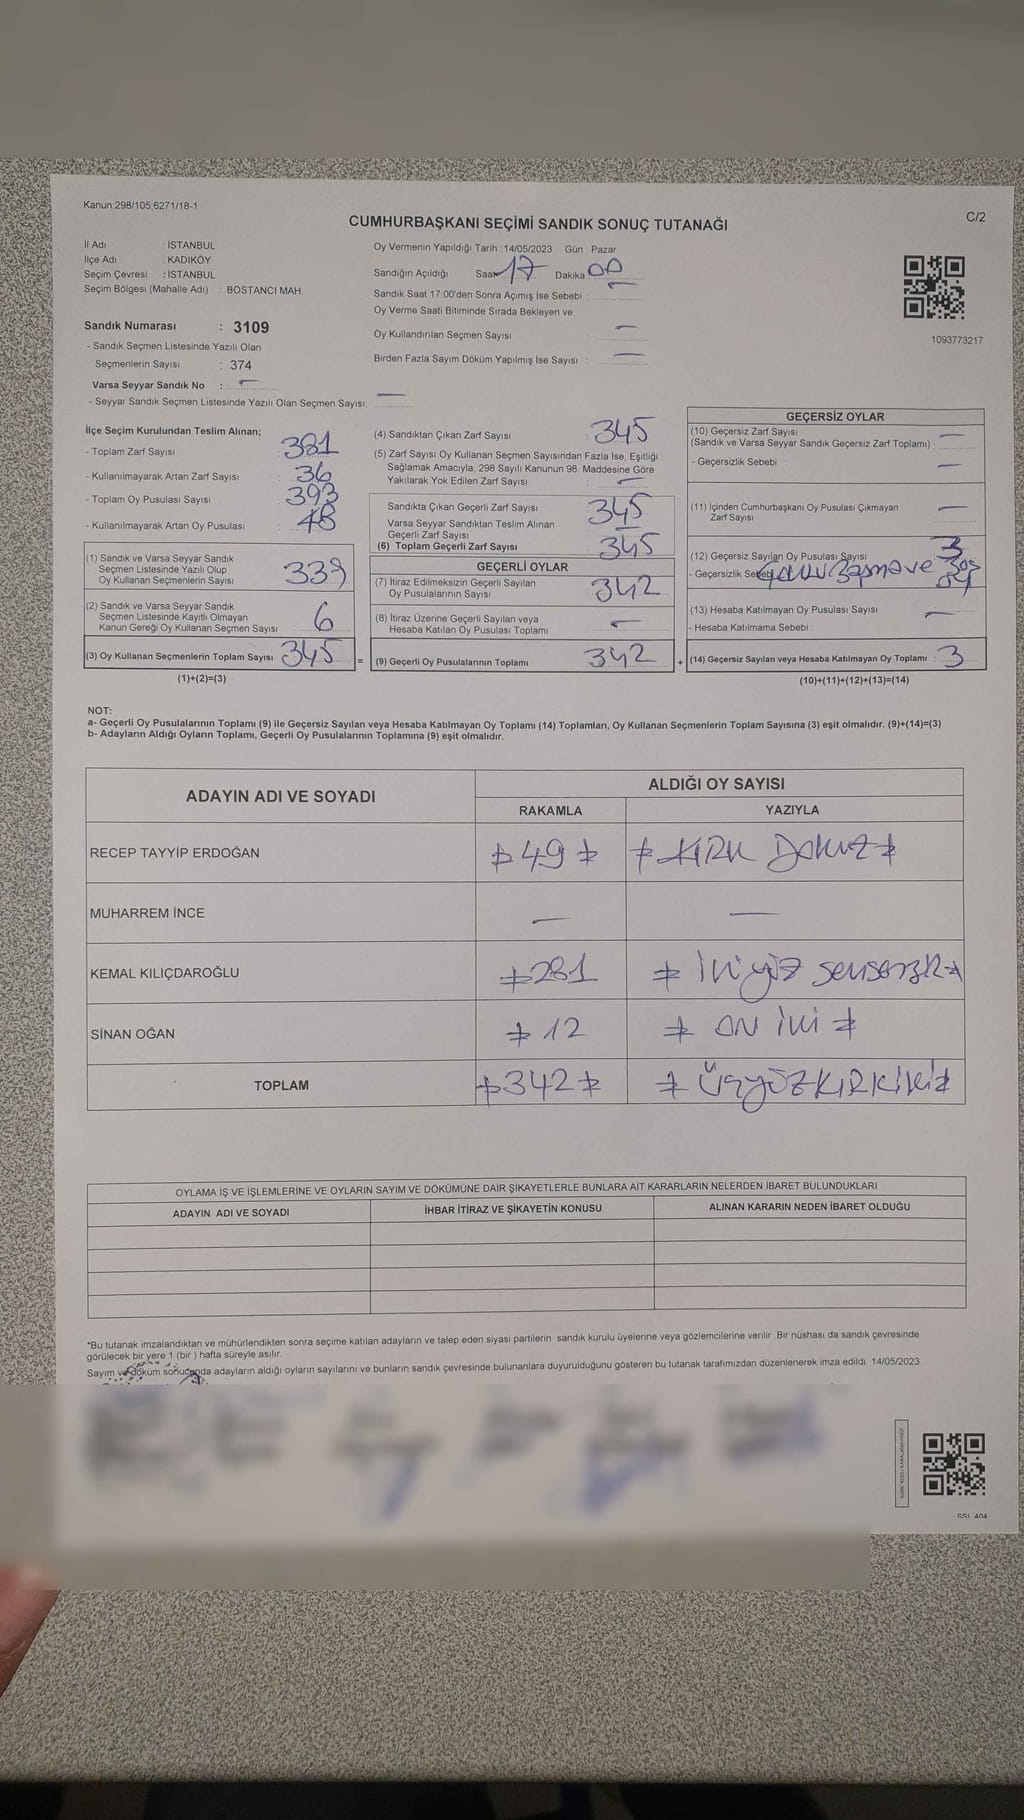 Kanun;298/105;6271/18-1
CUMHURBAŞKANI SEÇİMİ SANDIK SONUÇ TUTANAĞI
C/2
İl Adı : İSTANBUL
İlçe Adı : KADIKÖY
Seçim Çevresi : İSTANBUL
Seçim Bölgesi (Mahalle Adı) : BOSTANCI MAH.
Sandık Numarası : 3109
- Sandık Seçmen Listesinde Yazılı Olan
Seçmenlerin Sayısı : 374
Varsa Seyyar Sandık No : —
- Seyyar Sandık Seçmen Listesinde Yazılı Olan Seçmen Sayısı: —
Oy Vermenin Yapıldığı Tarih :14/05/2023 Gün : Pazar
Sandığın Açıldığı Saat 17 Dakika 00
Sandık Saat 17:00'den Sonra Açımış İse Sebebi : —
Oy Verme Saati Bitiminde Sırada Bekleyen ve
Oy Kullandırılan Seçmen Sayısı : —
Birden Fazla Sayım Döküm Yapılmış İse Sayısı : —
1093773217
İlçe Seçim Kurulundan Teslim Alınan;
- Toplam Zarf Sayısı : 381
- Kullanılmayarak Artan Zarf Sayısı : 36
- Toplam Oy Pusulası Sayısı : 393
- Kullanılmayarak Artan Oy Pusulası : 48
(1) Sandık ve Varsa Seyyar Sandık
Seçmen Listesinde Yazılı Olup
Oy Kullanan Seçmenlerin Sayısı 339
(2) Sandık ve Varsa Seyyar Sandık
Seçmen Listesinde Kayıtlı Olmayan
Kanun Gereği Oy Kullanan Seçmen Sayısı : 6
(3) Oy Kullanan Seçmenlerin Toplam Sayısı : 345
(1)+(2)=(3)
=
(4) Sandıktan Çıkan Zarf Sayısı : 345
(5) Zarf Sayısı Oy Kullanan Seçmen Sayısından Fazla İse, Eşitliği
Sağlamak Amacıyla; 298 Sayılı Kanunun 98. Maddesine Göre
Yakılarak Yok Edilen Zarf Sayısı : —
Sandıkta Çıkan Geçerli Zarf Sayısı : 345
Varsa Seyyar Sandıktan Teslim Alınan
Geçerli Zarf Sayısı : —
(6) Toplam Geçerli Zarf Sayısı : 345
GEÇERLİ OYLAR
(7) İtiraz Edilmeksizin Geçerli Sayılan
Oy Pusulalarının Sayısı : 342
(8) İtiraz Üzerine Geçerli Sayılan veya
Hesaba Katılan Oy Pusulası Toplamı : —
(9) Geçerli Oy Pusulalarının Toplamı : 342
+
GEÇERSİZ OYLAR
(10) Geçersiz Zarf Sayısı
(Sandık ve Varsa Seyyar Sandık Geçersiz Zarf Toplamı) : —
- Geçersizlik Sebebi : —
(11) İçinden Cumhurbaşkanı Oy Pusulası Çıkmayan
Zarf Sayısı : —
(12) Geçersiz Sayılan Oy Pusulası Sayısı : 3
- Geçersizlik Sebebi
(13) Hesaba Katılmayan Oy Pusulası Sayısı : —
- Hesaba Katılmama Sebebi :
(14) Geçersiz Sayılan veya Hesaba Katılmayan Oy Toplamı : 3
(10)+(11)+(12)+(13)=(14)
NOT:
a- Geçerli Oy Pusulalarının Toplamı (9) ile Geçersiz Sayılan veya Hesaba Katılmayan Oy Toplamı (14) Toplamları, Oy Kullanan Seçmenlerin Toplam Sayısına (3) eşit olmalıdır. (9)+(14)=(3)
b- Adayların Aldığı Oyların Toplamı, Geçerli Oy Pusulalarının Toplamına (9) eşit olmalıdır.
ADAYIN ADI VE SOYADI
ALDIĞI OY SAYISI
RAKAMLA YAZIYLA
RECEP TAYYİP ERDOĞAN 49 KIRK DOKUZ
MUHARREM İNCE — —
KEMAL KILIÇDAROĞLU 281 İKİYÜZ SEKSENBİR
SİNAN OĞAN 12 ON İKİ
TOPLAM 342 ÜÇYÜZKIRKİKİ
OYLAMA İŞ VE İŞLEMLERİNE VE OYLARIN SAYIM VE DÖKÜMÜNE DAİR ŞİKAYETLERLE BUNLARA AİT KARARLARIN NELERDEN İBARET BULUNDUKLARI
ADAYIN ADI VE SOYADI İHBAR İTİRAZ VE ŞİKAYETİN KONUSU ALINAN KARARIN NEDEN İBARET OLDUĞU
*Bu tutanak imzalandıktan ve mühürlendikten sonra seçime katılan adayların ve talep eden siyasi partilerin sandık kurulu üyelerine veya gözlemcilerine verilir. Bir nüshası da sandık çevresinde
görülecek bir yere 1 (bir ) hafta süreyle asılır.
Sayım ve döküm sonucunda adayların aldığı oyların sayılarını ve bunların sandık çevresinde bulunanlara duyurulduğunu gösteren bu tutanak tarafımızdan düzenlenerek imza edildi. 14/05/2023